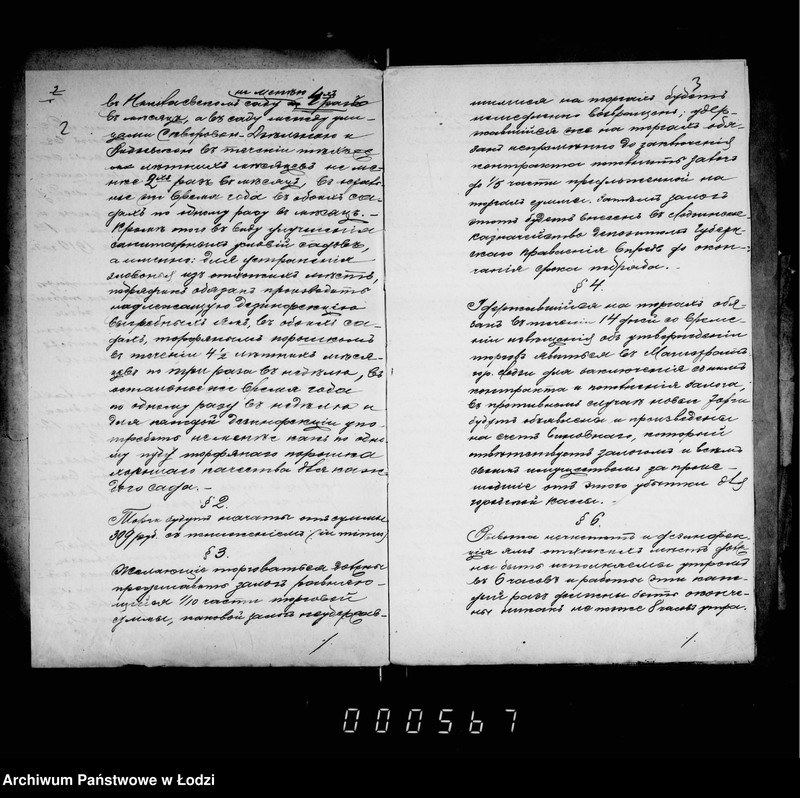 2
2
не менѣе 4хъ
въ Николаевскомъ саду разъ
въ мѣсяцъ, а въ саду между ули-
цами Сѣверовой, Дѣльною и
въ теченіи
лѣтнихъ мѣсяцевъ не ме-
нѣе 2хъ разъ въ мѣсяцъ, въ осталь-
ное же время года въ обоихъ са-
дахъ по одному разу въ мѣсяцъ.-
Кромѣ того въ виду улучшенія
санитарныхъ условій садовъ,
а именно: для устраненія
зловонія изъ отхожихъ мѣстъ,
подрядчикъ обязанъ производить
надлежащую дезинфекцію
выгребныхъ ямъ, въ обоихъ са-
дахъ, торфянымъ порошкомъ
въ теченіи 4½ лѣтнихъ мѣся-
цевъ по три раза въ недѣлю, въ
остальное же время года
по одному разу въ недѣлю и
для каждой дезинфекціи упо-
требить не менѣе какъ по одно-
му пуду торфяного порошка
хорошаго качества для каж-
даго сада.-
§ 2.
Торги будутъ начаты отъ суммы
309 руб. съ пониженіемъ (in minus)
§ 3.
Желающіе торговаться должны
представить залогъ равняю-
щійся 1/10 части торговой
суммы, каковой залогъ неудержав-
3
шимися на торгахъ будетъ
немедленно возвращенъ; удер-
жавшійся же на торгахъ обя-
занъ непремѣнно до заключенія
контракта пополнить залогъ
до 1/5 части предложенной на
торгахъ суммы. Залогъ
этотъ будетъ внесенъ въ
казначейство депозитомъ Губерн-
скаго Правленія впредь до окон-
чанія срока подряда.-
§ 4.
Удержавшійся на торгахъ обя-
занъ въ теченіи 14 дней со време-
ни извѣщенія объ утвержденіи
торговъ явиться въ Магистратъ
гор. Лодзи для заключенія
контракта и пополненія залога,
въ противномъ случаѣ новые торги
будутъ объявлены и произведены
на счетъ виновнаго, который
отвѣтствуетъ залогомъ и всѣмъ
своимъ имуществомъ за проис-
шедшіе отъ этого убытки для
городской кассы.-
§ 6.
Работа и дезинфек-
ція ямъ отхожихъ мѣстъ долж-
ны быть исполняемы утромъ
въ 6 часовъ и работы эти каж-
дый разъ должны быть окончен-
ны никакъ не позже 8 часовъ утра.
000567
Archiwum Państwowe w Łodzi